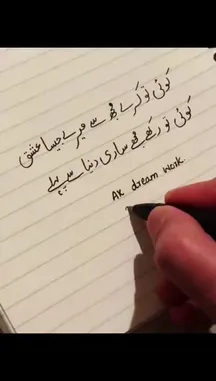 کوئی تو کرے مجھ سے میرے جیسا عشق
کوئی تو رکھے مجھے ساری دنیا سے پہلے
AK dream work.